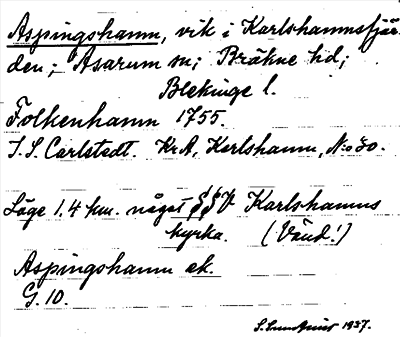 Aspingshamn, vik i Karlshamnsfjär-
den; Asarum sn; Bräkne hd;
Blekinge l.
Folkenhamn 1755.
I. S. Carlstedt. Kr.A, Karlshamn, N:o 30.
Läge 1.4 km. något SSV Karlshamns
kyrka. (Vänd!)
Aspingshamn ek.
G. 10.
S. Sundquist 1937.